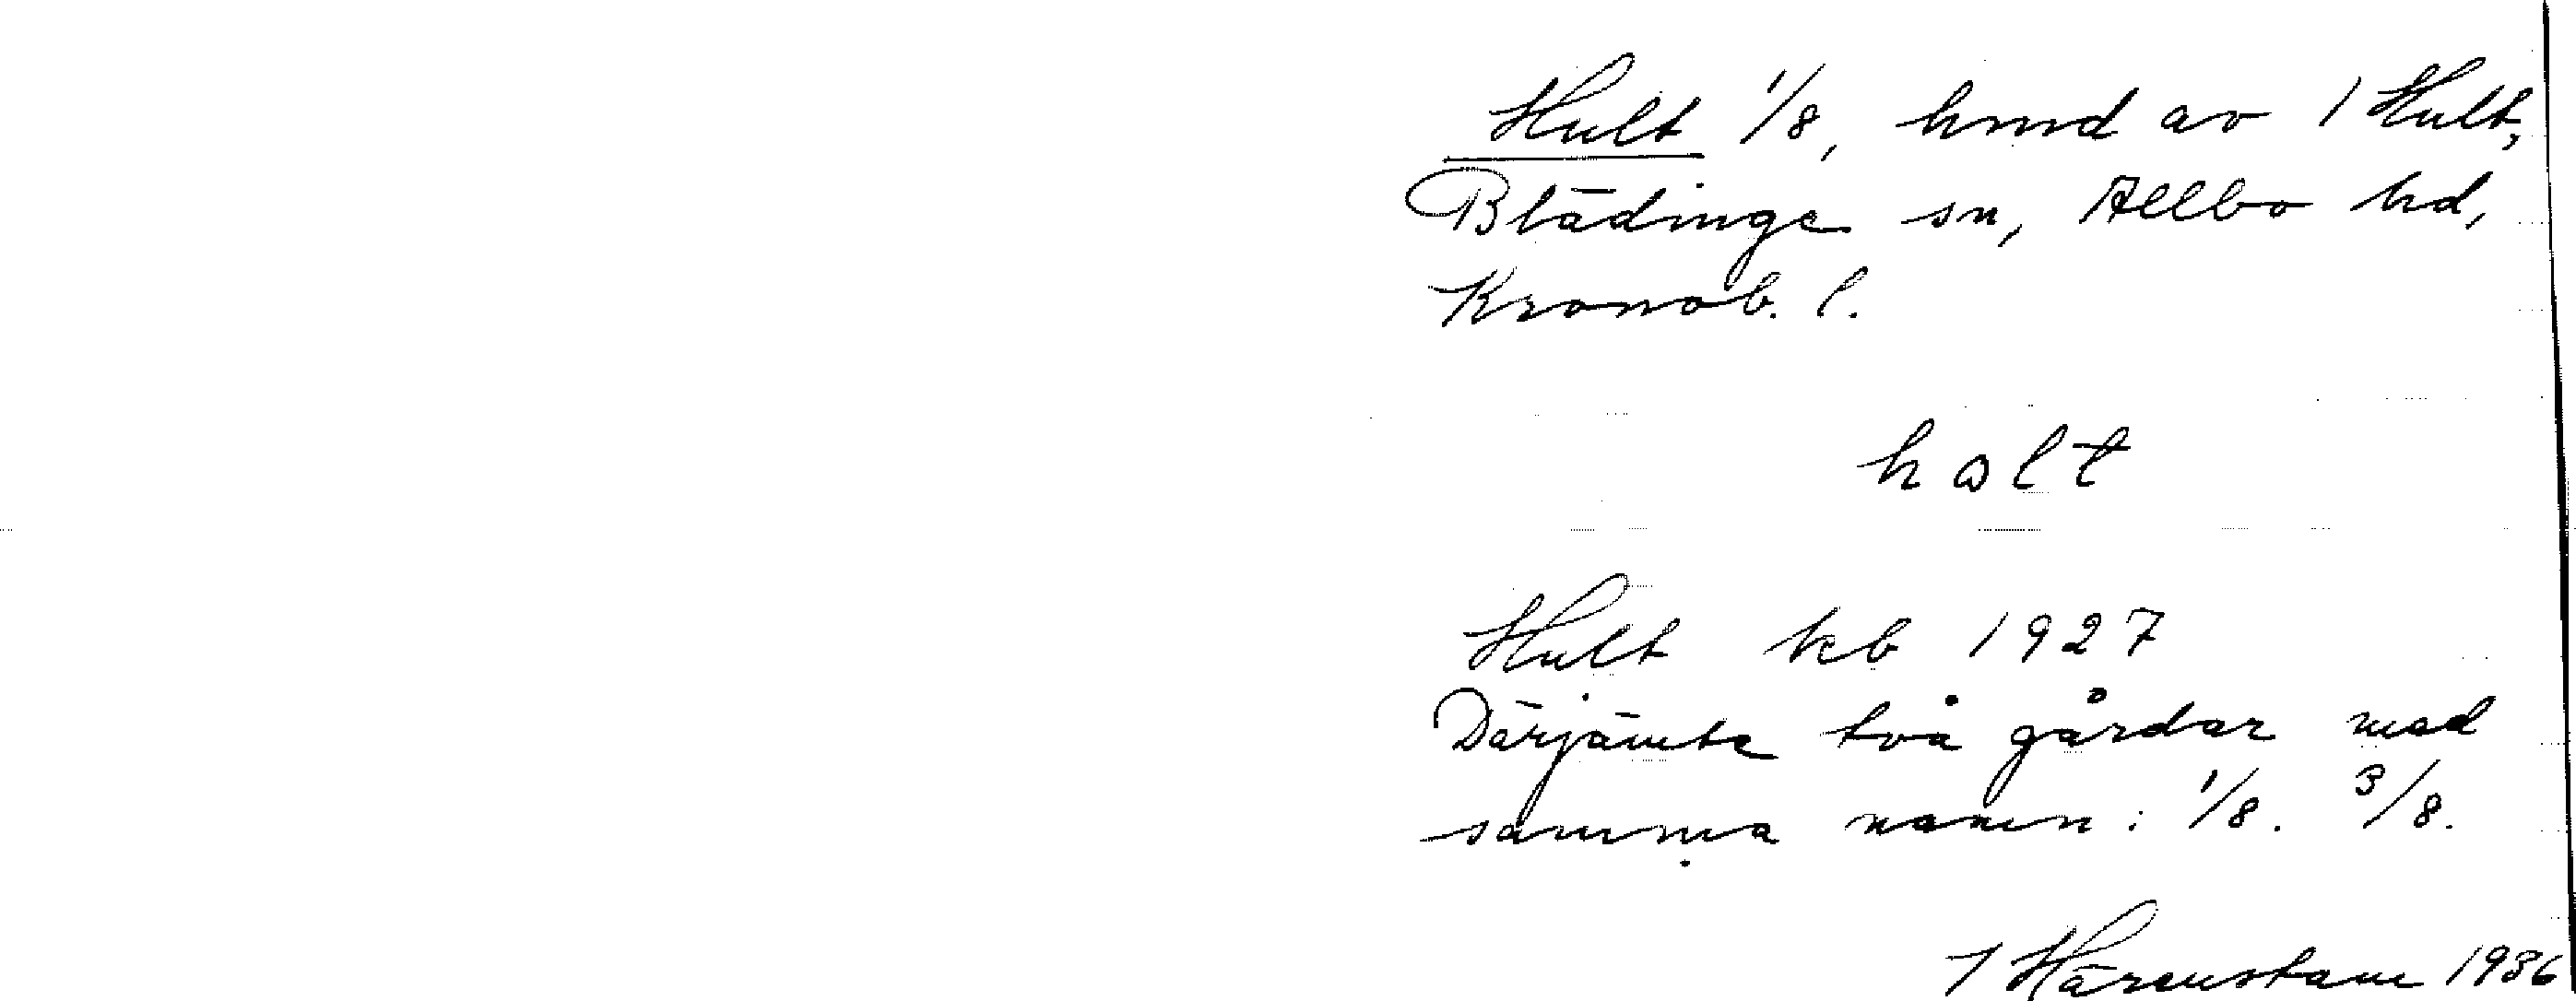 Hult 1/8, hmd av 1 Hult,
Blädinge sn, Allbo hd,
Kronob. l.
hɷlt
Hult kb 1927
Därjämte två gårdar med
samma namn: 1/8. 3/8.
Härenstam 1936